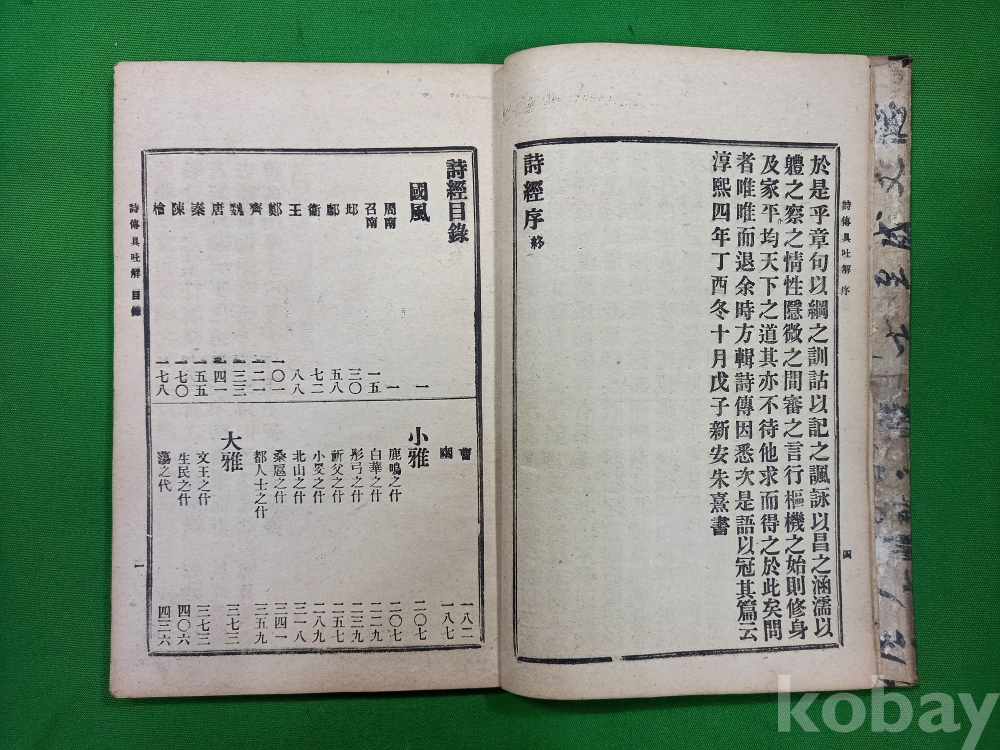 詩傳具吐解 序
四
於是乎章句以綱之訓詁以記之諷詠以昌之涵濡以
軆之察之情性隱微之間審之言行樞機之始則修身
及家平均天下之道其亦不待他求而得之於此矣問
者唯唯而退余時方輯詩傳因悉次是語以冠其篇云
淳熙四年丁酉冬十月戊子新安朱熹書
詩經序 終
詩經目錄
國風 一
周南 一
召南 一五
邶 三〇
鄘 五八
衛 七二
王 八八
鄭 一〇一
齊 一二一
魏 一三三
唐 一四一
秦 一五五
陳 一七〇
檜 一七八
曹 一八二
豳 一八七
小雅 二〇七
鹿鳴之什 二〇七
白華之什 二二九
彤弓之什 二三九
祈父之什 二五七
小旻之什 二八九
北山之什 三一八
桑扈之什 三四一
都人士之什 三五九
大雅 三七三
文王之什 三七三
生民之什 四〇六
蕩之代 四三六
詩傳具吐解 目錄
一
kobay